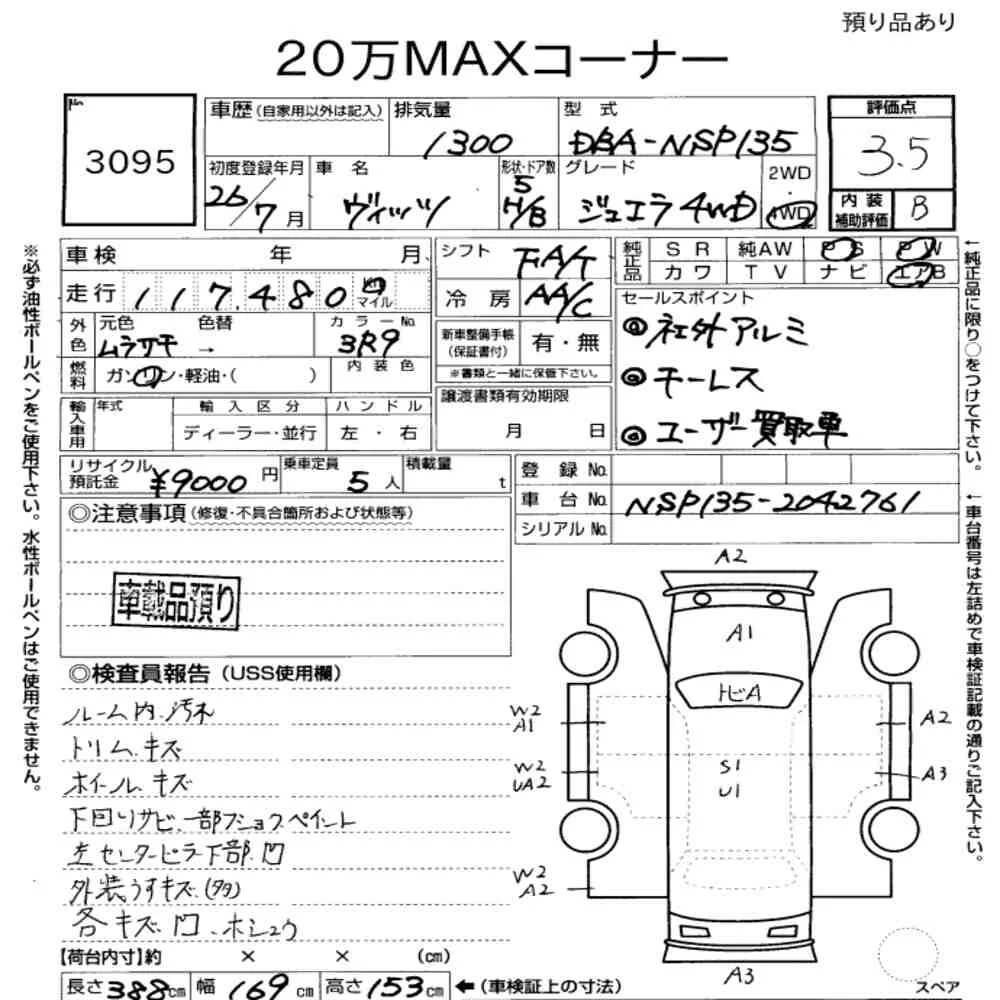 預り品あり
20万MAXコーナー
No.
3095
車歴(自家用以外は記入)
排気量
1300
型 式
DBA-NSP135
評価点
3.5
内装補助評価
B
初度登録年月
26/7月
車 名
ヴィッツ
形状・ドア数
5
H/B
グレード
ジュエラ 4WD
2WD
4WD
車検 年 月
走行 117,480 km マイル
シフト
FA/T
冷房
AA/C
純正品
SR 純AW PS PW
カワ TV ナビ エアB
外色
元色 色替
ムラサキ →
カラーNo.
3R9
燃料
ガソリン・軽油・( )
内装色
新車整備手帳(保証書付)
有・無
※書類と一緒に保管下さい。
セールスポイント
◎社外アルミ
◎キーレス
◎ユーザー買取車
輸入車用
年式
輸入区分
ディーラー・並行
ハンドル
左・右
譲渡書類有効期限
月 日
リサイクル預託金
¥9000円
乗車定員
5人
積載量
t
登録No.
車台No.
NSP135-2042761
シリアルNo.
◎注意事項(修復・不具合箇所および状態等)
車載品預り
◎検査員報告(USS使用欄)
ルーム内.汚れ
トリム.キズ
ホイール.キズ
下回りサビ.一部フショクペイント
左センターピラー下部.凹
外装うすキズ.(多)
各キズ.凹.ホシュウ
【荷台内寸】約 × × (cm)
長さ388cm 幅169cm 高さ153cm
←(車検証上の寸法)
A2
A1
トビA
W2
A1
A2
W2
UA2
S1
U1
A3
W2
A2
A3
スペア
※必ず油性ボールペンをご使用下さい。水性ボールペンはご使用できません。
←純正品に限り○をつけて下さい。
←車台番号は左詰めで車検証記載の通りご記入下さい。